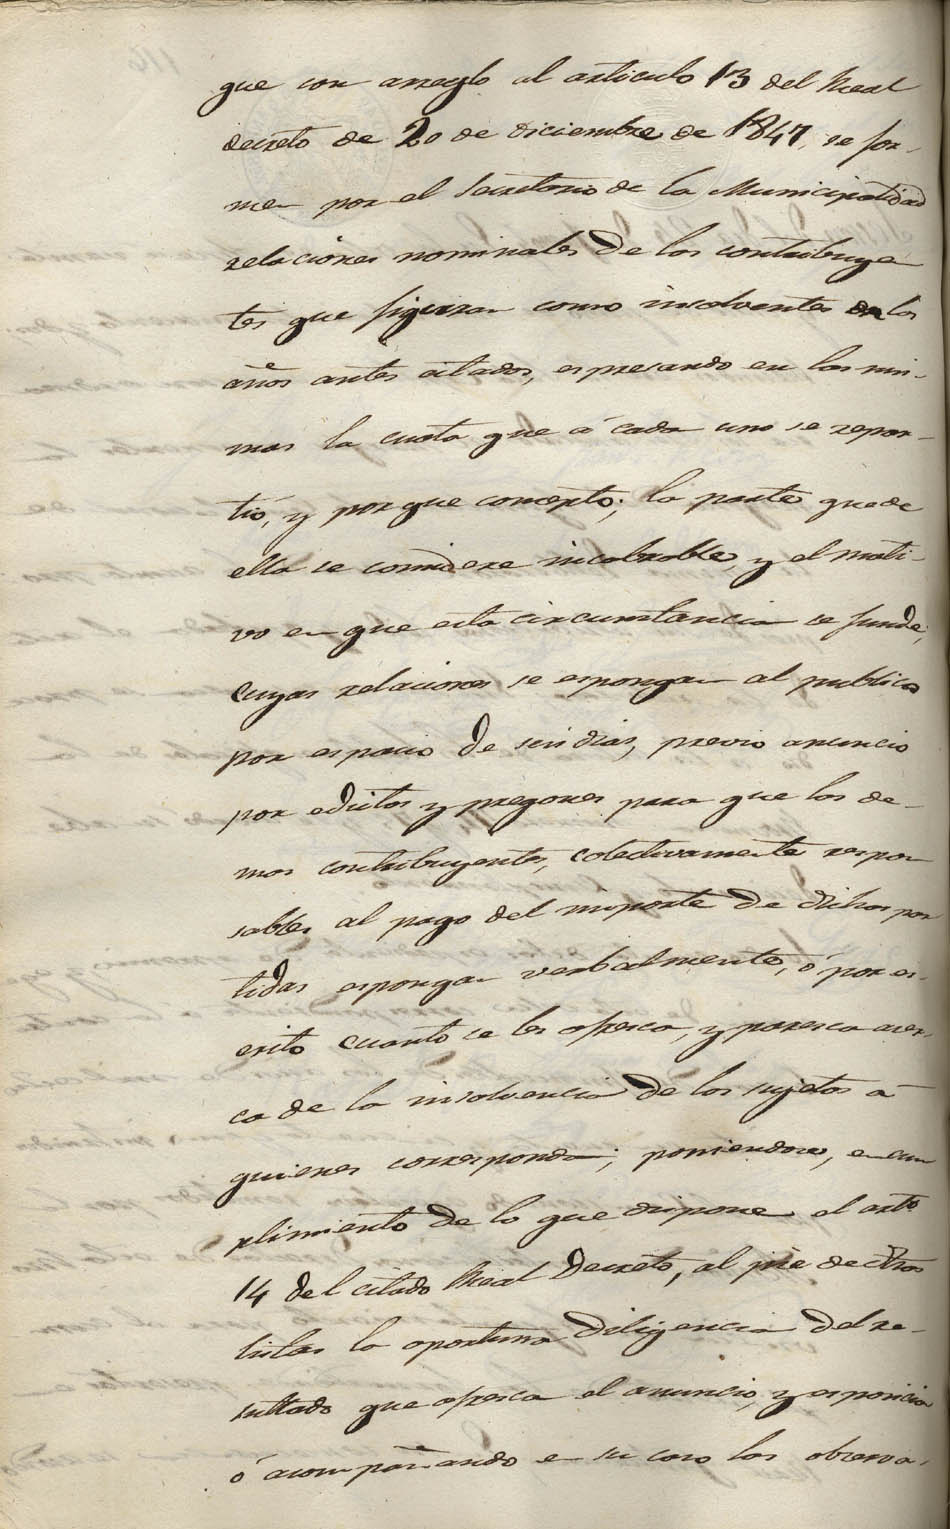 que con arreglo al articulo 13 del Real
decreto de 20 de diciembre de 1847, se for-
men por el Secretario de la Municipalidad
relaciones nominales de los contribuyen
tes que figuran como insolventes en los
años antes citados, espresando en las mis-
mas la cuota que á cada uno se repar-
tió, y por que concepto; la parte que de
ella se considere incobrable, y el moti-
vo en que esta circunstancia se funde;
cuyas relaciones se espongan al publico
por espacio de seis dias, previo anuncio
por edictos y pregones para que los de-
mas contribuyentes, colectivamente respon
sables al pago del importe de dichas par
tidas espongan verbalmente, ó por es-
crito cuanto se les ofresca, y paresca acer-
ca de la insolvencia de los sujetos á
quienes corresponda; poniendose, en cum
plimiento de lo que dispone el arto
14 del citado Real Decreto, al pie de dhas
listas la oportuna diligencia del re-
sultado que ofresca el anuncio, y esposicion
ó acompañando en su caso las observa-